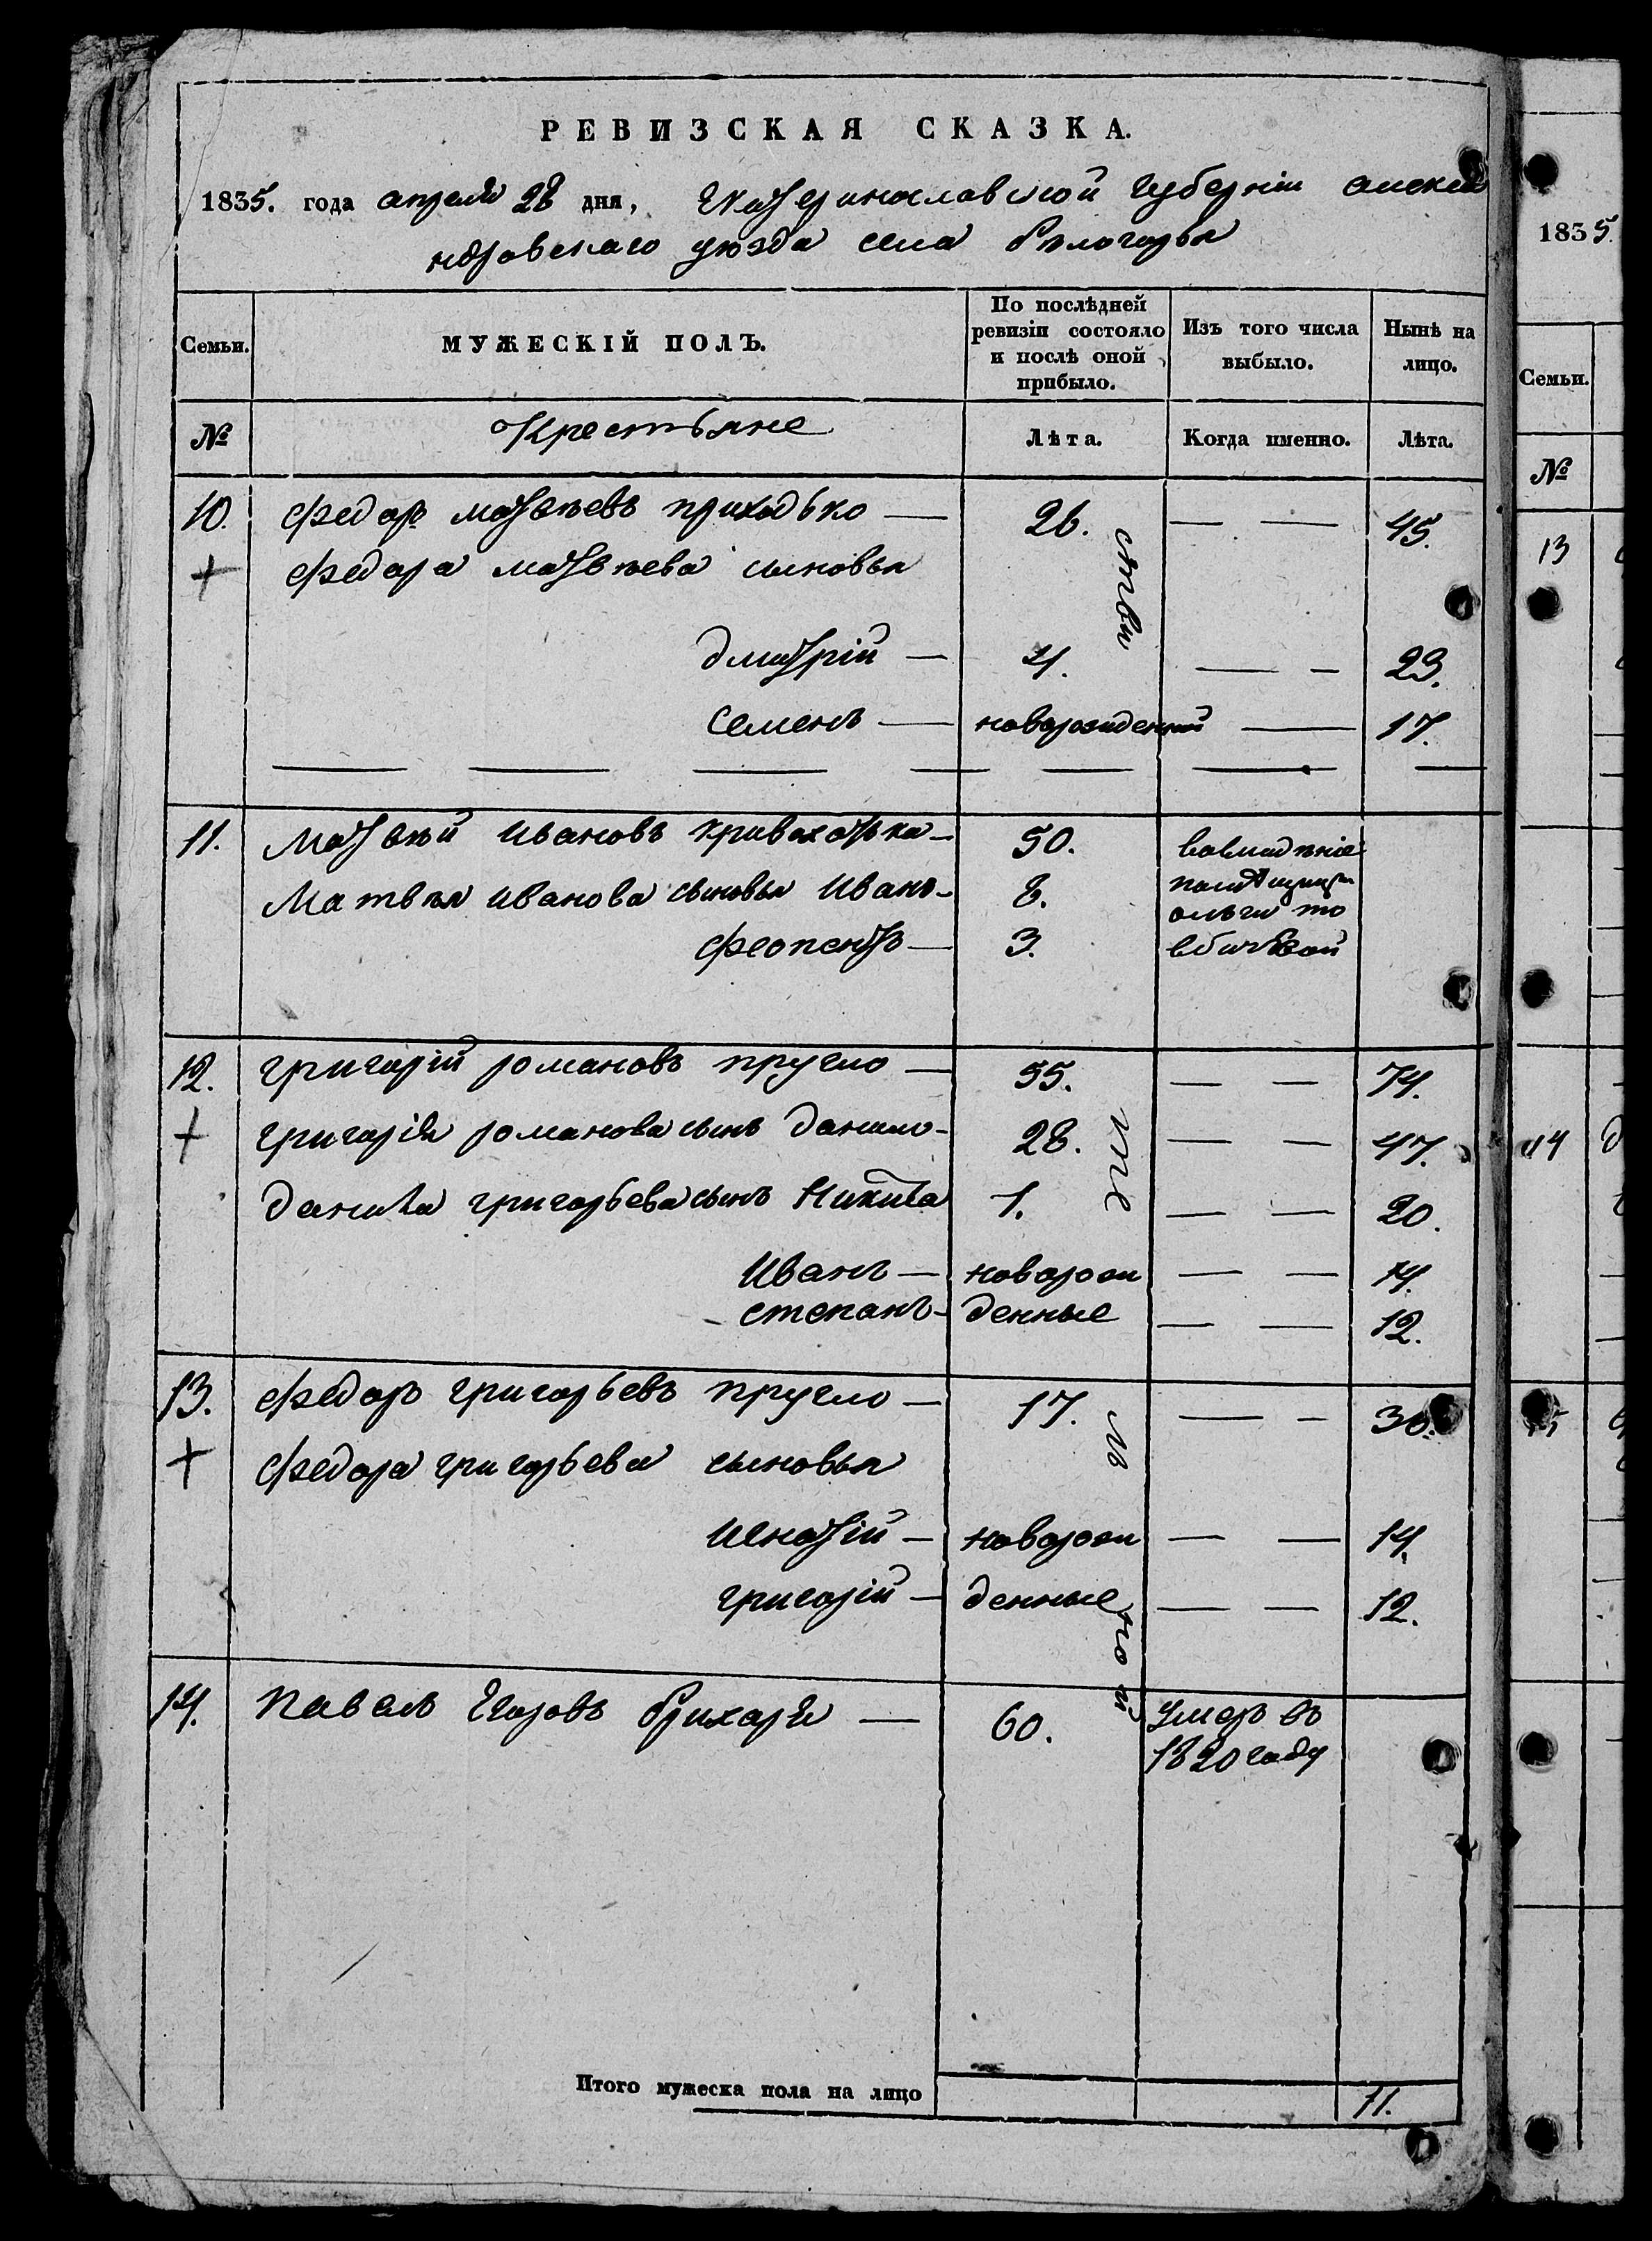 РЕВИЗСКАЯ СКАЗКА.
1835. года апреля 28 дня, Екатеринославской Губерніи алекса
ндровскаго уюзда села бѣлогорья
Семьи. МУЖЕСКІЙ ПОЛЪ. По послѣдней ревизіи состояло и послѣ оной прибыло. Изъ того числа выбыло. Нынѣ на лицо.
№ Крестьяне Лѣта. Когда именно. Лѣта.
10. Федоръ матвѣевъ приходько — 26. — — 45.
+ Федора матвѣева сыновья
дмитрій — 4. — — 23.
Семенъ — новорожденный — 17.
11. Матвѣй Ивановъ кривохатька — 50. вовладѣніе
Матвѣя Иванова сыновья Иванъ — 8. помѣщицы
ольги
Феопентъ — 3.
12. григорій романовъ пругло — 55. — — 74.
+ григорія романова сынъ данило — 28. — — 47.
данила григорьева сынъ Никита 1. — — 20.
Иванъ — новорож — — 14.
степанъ — денные — — 12.
13. Федоръ григорьевъ пругло — 17. — — 36.
+ Федора григорьева сыновья
Игнатій — новорож — — 14.
григорій — денные — — 12.
14. Павелъ Егоровъ брихаря — 60. умеръ въ
1820 году
Итого мужеска пола на лицо 11.
1835.
Семьи.
№
13
14